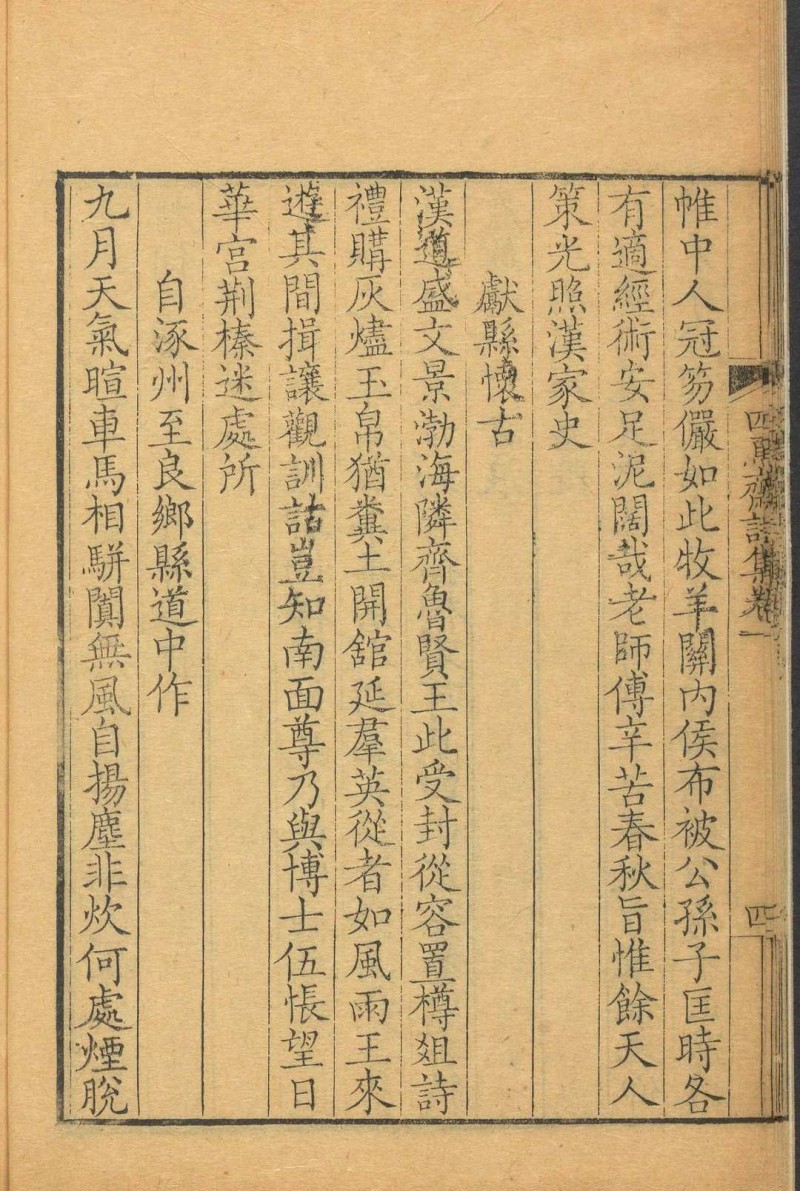 帷中人冠笏儼如此牧羊關内侯布被公孫子匡時各
有適經術安足泥闊哉老師傅辛苦春秋旨惟餘天人
策光照漢家史
獻縣懷古
漢道盛文景渤海隣齊魯賢王此受封從容置樽俎詩
禮購灰燼玉帛猶糞土開舘延羣英從者如風雨王來
遊其間揖讓觀訓詁豈知南面尊乃與博士伍悵望日
華宫荆榛迷處所
自涿州至良鄉縣道中作
九月天氣暄車馬相駢闐無風自揚塵非炊何處煙脫
詩集卷一
四